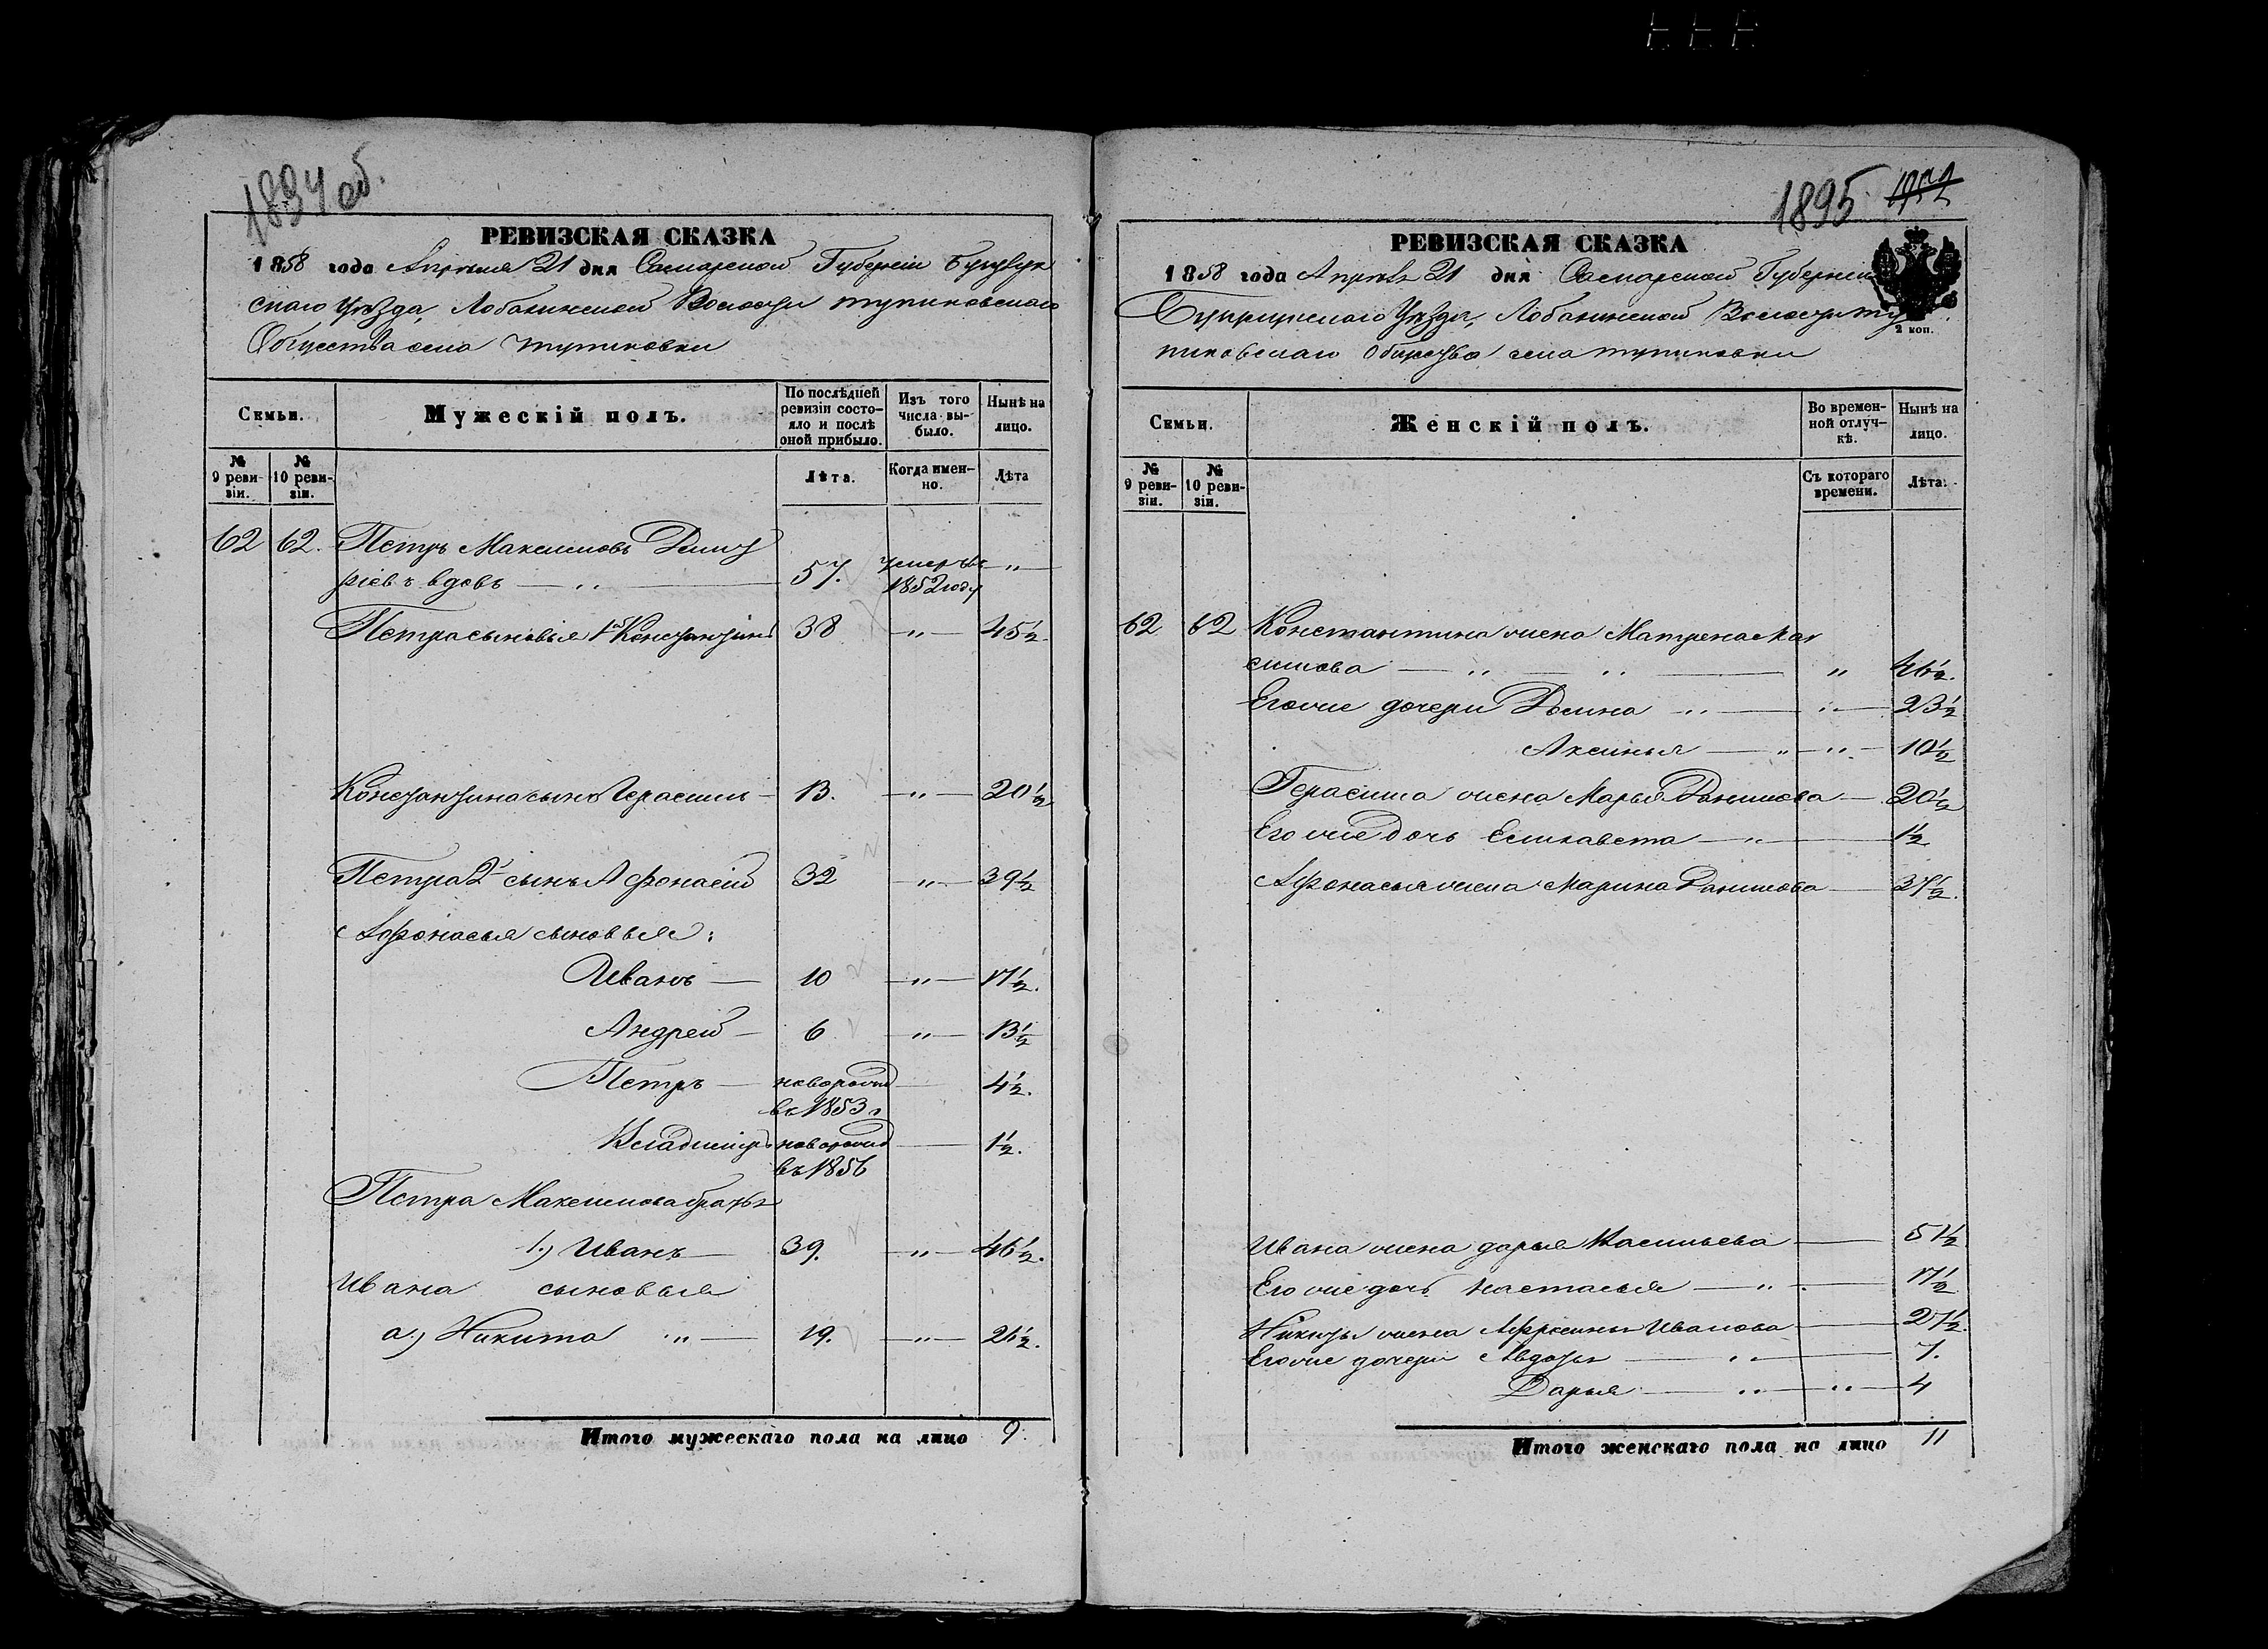 1894 об.
РЕВИЗСКАЯ СКАЗКА
1858 года Апреля 21 дня Самарской Губернии Бугурус
скаго Уѣзда, Лобазинской Волости Тупиковскаго
Общества села Тупиковки
Семьи.
Мужескій полъ.
По послѣдней ревизіи состо- яло и послѣ оной прибыло.
Изъ того числа вы- было.
Нынѣ на лицо.
№ 9 реви- зіи.
№ 10 реви- зіи.
Лѣта.
Когда имен- но.
Лѣта
62 62. Петръ Максимовъ Дмит
ріевъ вдовъ — „ — 57. умеръ въ 1852 году — „ —
Петра сыновья 1й Константинъ 38 — „ — 45½.
Константина сынъ Герасимъ — 13. — „ — 20½
Петра 2й сынъ Афонасій 32 — „ — 39½
Афонасья сыновья:
Иванъ — 10 — „ — 17½.
Андрей — 6 — „ — 13½
Петръ — новорожд — 4½.
въ 1853 г
Владимиръ новорожд — 1½.
въ 1856
Петра Максимова братья
1.) Иванъ — 39. — „ — 46½.
Ивана сыновья
а.) Никита „ — 19. — „ — 26½.
Итого мужескаго пола на лицо 9.
1895
РЕВИЗСКАЯ СКАЗКА
1858 года Апрѣля 21 дня Самарской Губерніи
Уѣзда, Лобазинской Волости Ту
пиковскаго Общества села Тупиковки
2 коп.
Семьи.
Женскій полъ.
Во времен- ной отлуч- кѣ.
Нынѣ на лицо.
№ 9 реви- зіи.
№ 10 реви- зіи.
Съ котораго времени.
Лѣта.
62 62 Константина жена Матрена Мак
симова — „ — „ — „ 46½.
Его же дочери Домна „ — „ — 23½
Аксинья — „ — „ — 10½
Герасима жена Марья Данилова — 20½
Его же дочь Елисавета — „ — 1½
Афонасья жена Марина Данилова — 37½.
Ивана жена Дарья Васильева — 51½
Его же дочь Настасья — „ — 17½
Никиты жена Афросинья Иванова — 27½.
Его же дочери Авдотья — „ — 7.
Дарья — „ — „ — 4
Итого женскаго пола на лицо 11